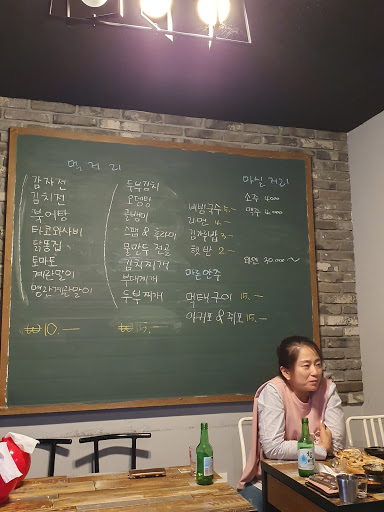 먹거리
감자전
김치전
북어탕
타코와사비
닭똥집
토마토
계란말이
명란계란말이
₩10.—
두부김치
오뎅탕
골뱅이
스팸 & 후라이
물만두 전골
김치찌개
부대찌개
두부찌개
₩15.—
비빔국수 5.—
라면 4.—
김가루밥 3.—
햇반 2.—
마른안주
먹태구이 15.—
아귀포 & 쥐포 15.—
마실거리
소주 4000
맥주 4000
30,000~